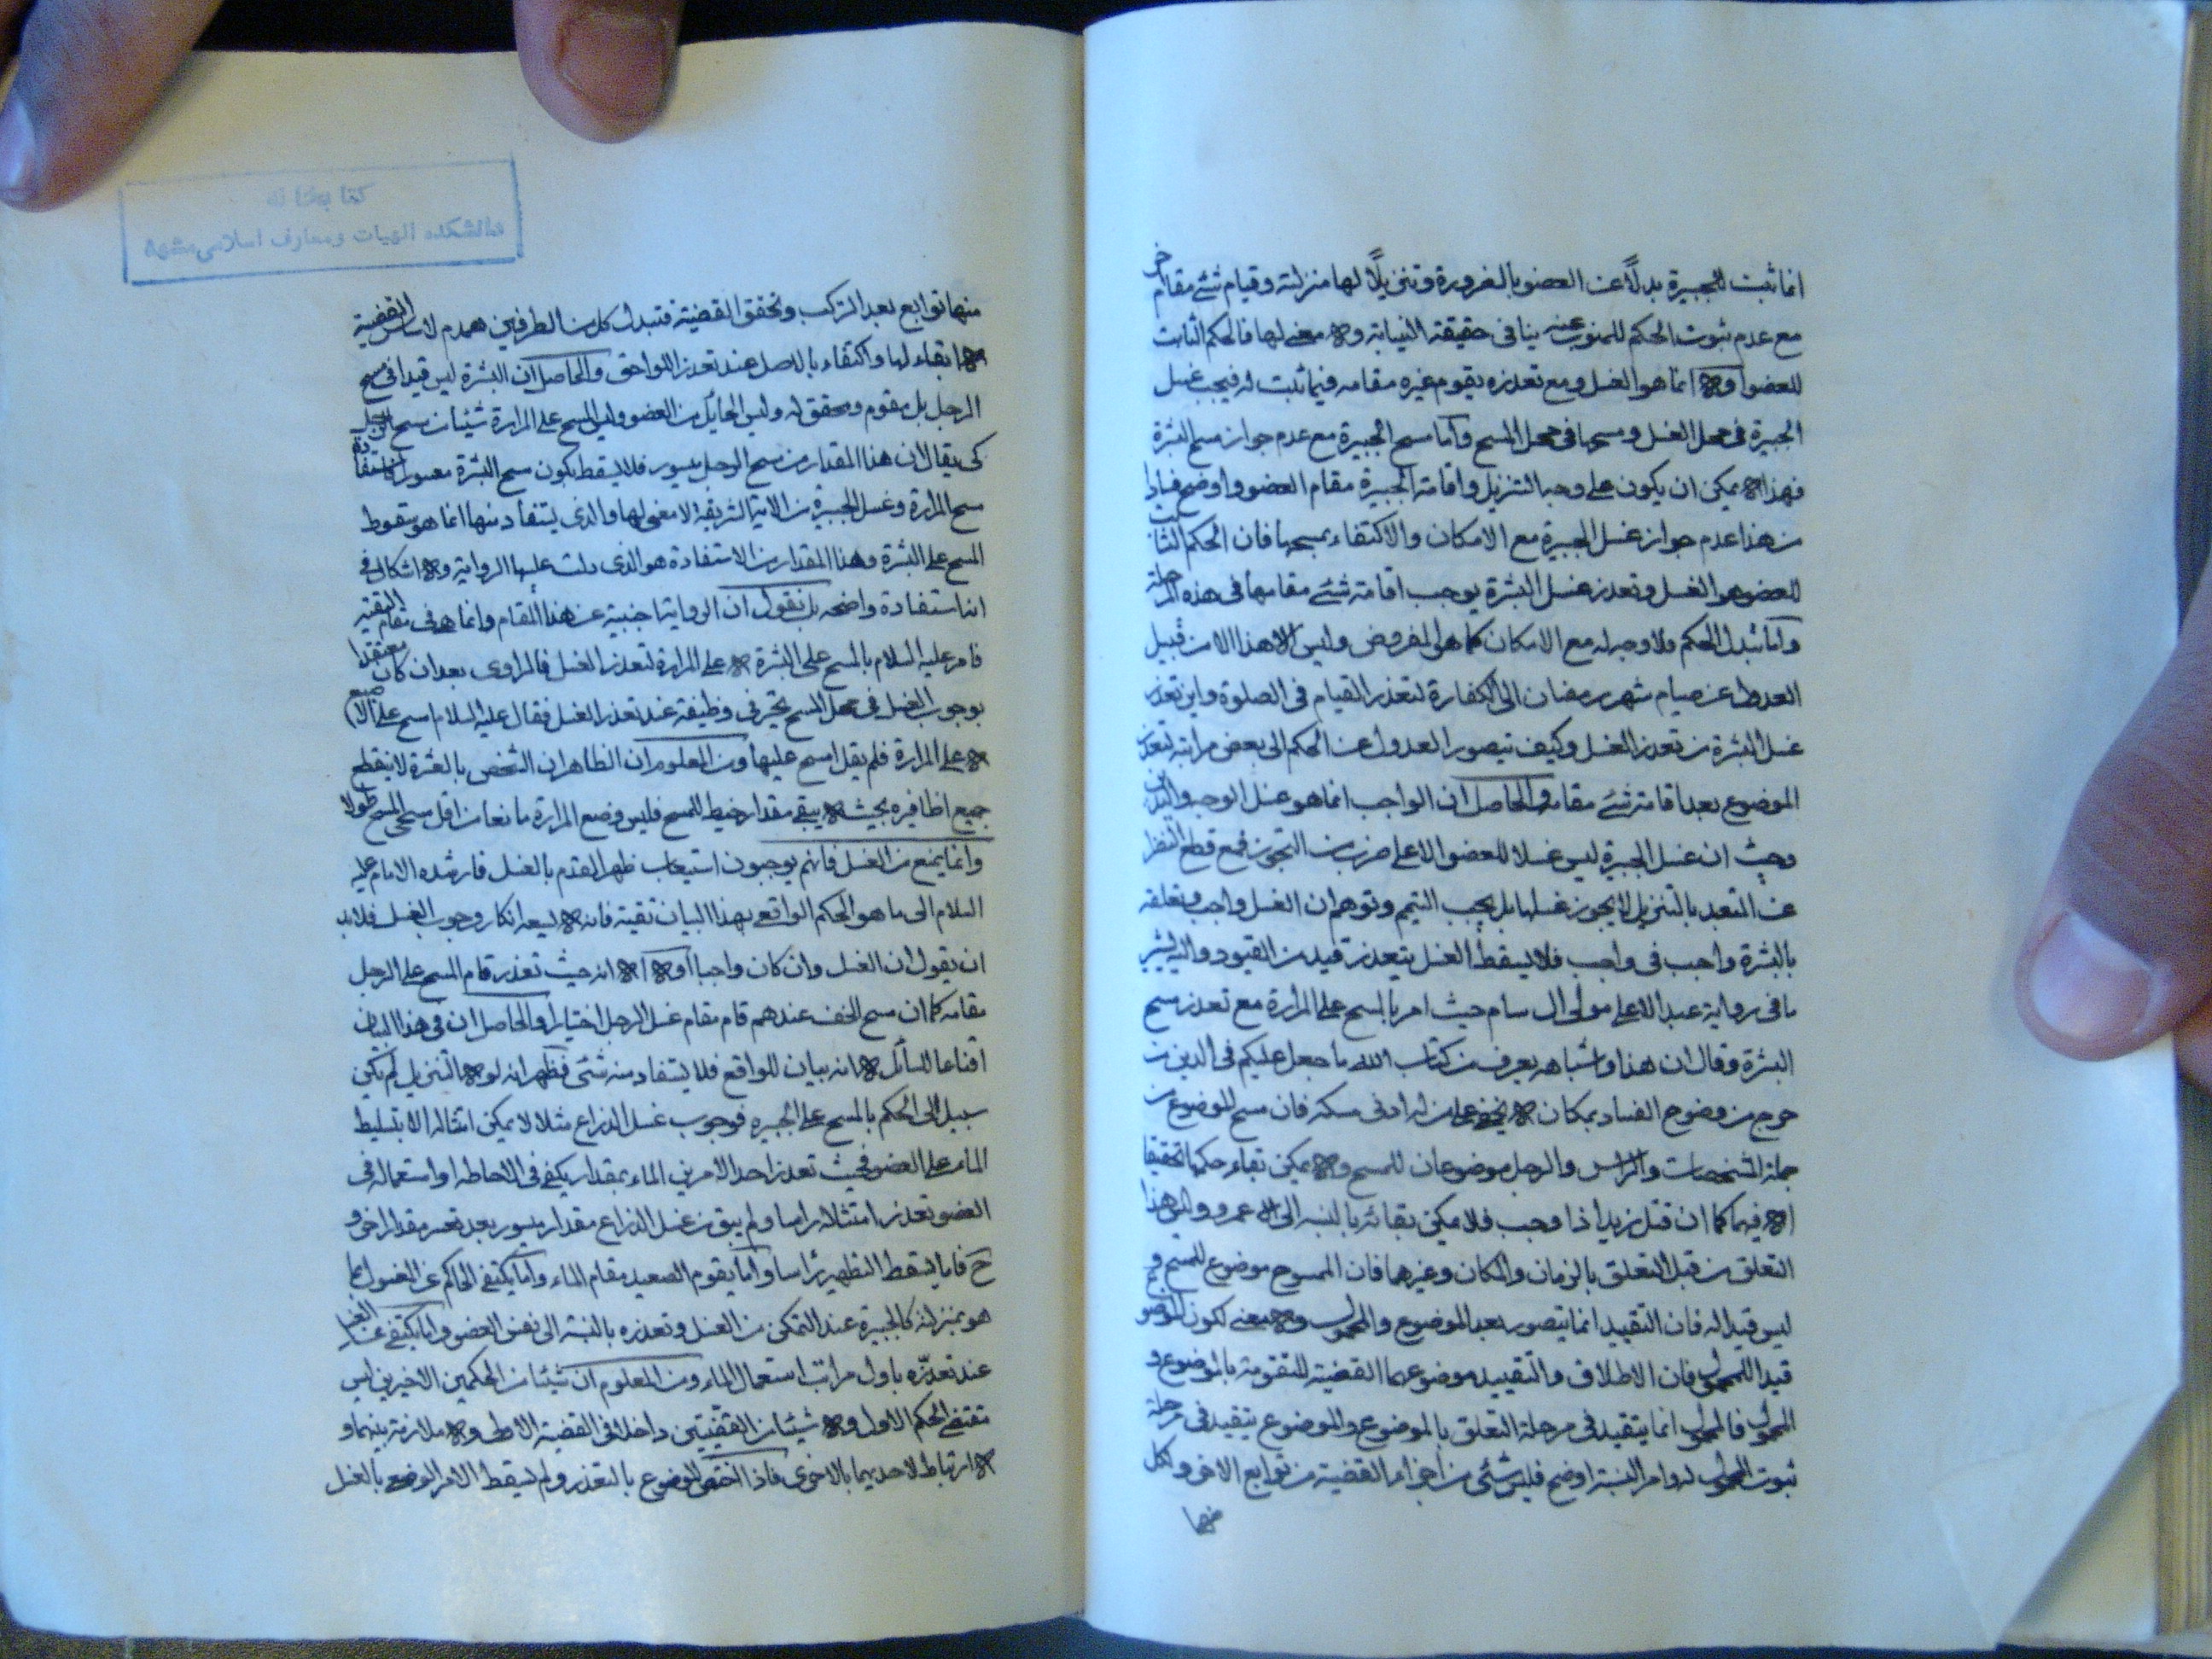 انما ثبت للجبيرة بدلاً عن العضو بالضرورة وتنزيلاً لها منزلته وقيام شئ مقام آخر
مع عدم ثبوت الحكم للمنوب عنه ينافى حقيقة النيابة ولا معنى لها فالحكم الثابت
للعضو اولا انما هو الغسل ومع تعذره يقوم غيره مقامه فيما ثبت له فيجب غسل
الجبيرة فى محل الغسل ومسحها فى محل المسح واما مسح الجبيرة مع عدم جواز مسح البشرة
فهذا لا يمكن ان يكون على وجه التنزيل واقامة الجبيرة مقام العضو واوضح فسادا
من هذا عدم جواز غسل الجبيرة مع الامكان والاكتفاء بمسحها فان الحكم الثابت
للعضو هو الغسل وتعذر غسل البشرة يوجب اقامة شئ مقامها فى هذه المرحلة
واما تبدل الحكم فلا وجه له مع الامكان كما هو المفروض وليس هذا الا من قبيل
العدول عن صيام شهر رمضان الى الكفارة لتعذر القيام فى الصلوة واين تعذر
غسل البشرة من تعذر الغسل وكيف يتصور العدول عن الحكم الى بعض مراتبه لتعذر
الموضوع بعد اقامة شئ مقامه والحاصل ان الواجب انما هو غسل الوجه واليدين
وحيث ان غسل الجبيرة ليس غسلا للعضو الا على ضرب من التجوز فمع قطع النظر
عن التعبد بالتنزيل لا يجوز غسلها بل يجب التيمم وتوهم ان الغسل واجب وتعلقه
بالبشرة واجب فى واجب فلا يسقط الغسل بتعذر قيد من القيود واليه يشير
ما فى رواية عبد الاعلى مولى ال سام حيث امر بالمسح على المرارة مع تعذر مسح
البشرة وقال ان هذا واشباهه يعرف من كتاب الله ما جعل عليكم فى الدين من
حرج من وضوح الفساد بمكان لا يخفى على من له ادنى مسكة فان مسح الموضوع من
جملة المشخصات والراس والرجل موضوعان للمسح ولا يمكن بقاء حكمها تحقيقا
الا فيهما كما ان قتل زيد اذا وجب فلا يمكن بقائه بالنسبة الى عمرو وليس هذا
التعلق من قبيل التعلق بالزمان والمكان وغيرهما فان الممسوح موضوع للمسح و
ليس قيدا له فان التقييد انما يتصور بعد الموضوع والمحمول ولا معنى لكون الموضوع
قيدا للمحمول فان الاطلاق والتقييد موضوعهما القضية المتقومة بالموضوع و
المحمول فالمحمول انما يتقيد فى مرحلة التعلق بالموضوع والموضوع يتقيد فى مرحلة
ثبوت المحمول له وامر النسبة اوضح فليس شئ من اجزاء القضية من توابع الاخر ولكل
منها
کتابخانه
دانشکده الهیات ومعارف اسلامی مشهد
منها توابع بعد التركب وتحقق القضية فتبدل كل من الطرفين هدم لاساس القضية
لا ابقاء لها واكتفاء بالاصل عند تعذر اللواحق والحاصل ان البشرة ليس قيدا فى مسح
الرجل بل مقوم ومحقق له وليس الحايل من العضو وليس المسح على المرارة شيئا من مسح الرجل
كى يقال ان هذا المقدار من مسح الرجل ميسور فلا يسقط بكون مسح البشرة معسورا فاستفادة
مسح المرارة وغسل الجبيرة من الاية الشريفة لا معنى لها والذى يستفاد منها انما هو سقوط
المسح على البشرة وهذا المقدار من الاستفادة هو الذى دلت عليها الرواية ولا اشكال فى
انها استفادة واضحة بل نقول ان الرواية اجنبية عن هذا المقام وانما هو فى مقام التقية
فامر عليه السلام بالمسح على البشرة لا على المرارة لتعذر الغسل فالراوى بعد ان كان معتقدا
بوجوب الغسل فى محل المسح تحير فى وظيفته عند تعذر الغسل فقال عليه السلام امسح على الاصبع
لا على المرارة فلم يقل امسح عليها ومن المعلوم ان الظاهر ان الشخص بالعثرة لا ينقطع
جميع اظافيره بحيث لا يبقى مقدار خيط للمسح فليس وضع المرارة مانعا من اقل مسمى المسح طولا
وانما يمنع من الغسل فانهم يوجبون استيعاب ظهر القدم بالغسل فارشده الامام عليه
السلام الى ما هو الحكم الواقعى بهذا البيان تقية فانه لا يسعه انكار وجوب الغسل فلا بد
ان يقول ان الغسل وان كان واجبا اولا الا انه حيث تعذر قام المسح على الرجل
مقامه كما ان مسح الخف عندهم قام مقام غسل الرجل اختيارا والحاصل ان فى هذا البيان
اقناعا للسائل لا انه بيان للواقع فلا يستفاد منه شئ فظهر انه لولا التنزيل لم يكن
سبيل الى الحكم بالمسح على الجبيرة فوجوب غسل الذراع مثلا لا يمكن امتثاله الا بتسليط
الماء على العضو فحيث تعذر احد الامرين الماء بمقدار يكفى فى الاحاطة او استعماله فى
العضو تعذر امتثاله راسا ولم يبق من غسل الذراع مقدار ميسور بعد تعسر مقدار اخر و
ح فاما يسقط التطهير راسا واما يقوم الصعيد مقام الماء واما يكتفى الحاكم عن المغسول بما
هو بمنزلته كالجبيرة عند التمكن من الغسل وتعذره بالنسبة الى نفس العضو واما يكتفى عن الغسل
عند تعذره باول مراتب استعمال الماء ومن المعلوم ان شيئا من الحكمين الاخيرين ليس
مقتضى الحكم الاول ولا شيئا من القضيتين داخلا فى القضية الاولى ولا ملازمة بينهما و
لا ارتباط لاحديهما بالاخرى فاذا اختص الموضوع بالتعذر ولم يسقط الامر الوضعى بالغسل